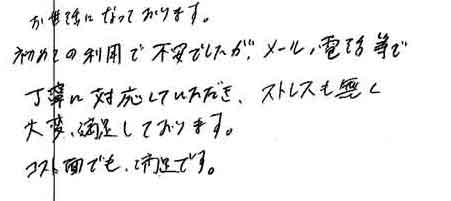 お世話になっております。
初めての利用で不安でしたが、メール、電話等で
丁寧に対応していただき、ストレスも無く
大変、満足しております。
コスト面でも、満足です。